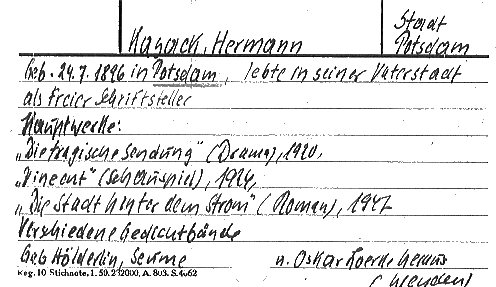 Kasack, Hermann
Stadt
Potsdam
Geb. 24.7.1896 in Potsdam, lebte in seiner Vaterstadt
als freier Schriftsteller
Hauptwerke:
„Die tragische Sendung" (Drama), 1920,
„Vincent" (Schauspiel), 1924,
„Die Stadt hinter dem Strom" (Roman), 1947
Verschiedene Gedichtbände
Gab Hölderlin, Seume u. Oskar Loerke heraus
Reg. 10 Stichnote. 1. 50. 2 000. A. 803. S. 4062